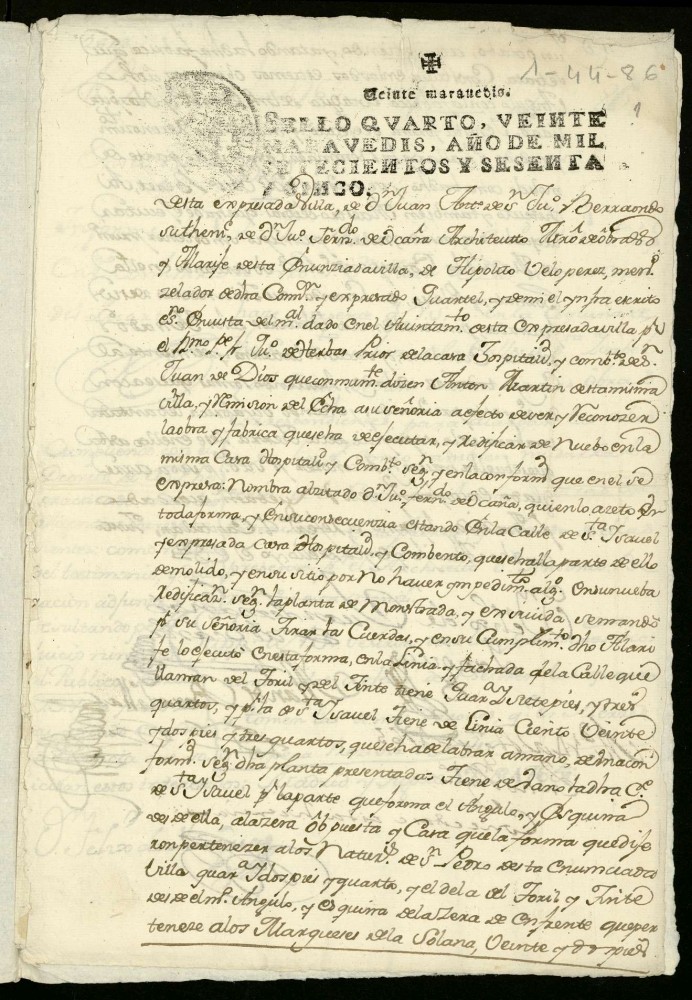 1-44-86
1
Veinte maravedis.
SELLO QVARTO, VEINTE
MARAVEDIS, AÑO DE MIL
SETECIENTOS Y SESENTA
Y CINCO.
desta expresada Villa, de dn Juan Anto. de Sn Juo. y Berraondo
su theni.e, de dn Juo. Fern.do de Ocaña Architectto Mtro de obras
y Alarife desta Enunziada villa, de Hipolito Velo perez,
zelador de dha Comn. y expresado Quartel, y de mi el ynfraescrito
esno. En vista del ml. dado en el Aiuintam.to desta Expresada villa pr
el Rmo. Pe. fr. Juo. de Herbas Prior dela casa Hospitald. y combto. de Sn
Juan de Dios que conmunmte. dizen Anton Martin desta misma
villa, y Remision del Echa a su señoria a efecto de ver y Reconozer
la obra y fabrica que se ha de ejecutar, y Redificar de Nuebo en la
misma Casa Hospitald. y Combto. segn. y en la conformd. que en el se
expresa: Nombra al zitado dn Juo. fern.do de Ocaña, quien lo azeto En
toda forma, y En su consecuenzia estando En la Calle de Sta Ysavel
y expresada casa Hospitald. y Combento, que se halla parte de ello
demolido, y en su sitio por No haver ympedim.to algo. En su nueba
Redificazn. segn. la planta demonstrada, y en seuida se mando
pr su señoria Tirar las Cuerdas, y en su Cumplim.to dho Alari
fe lo ejecuto En esta forma, en la Linia y fachada de la Calle que
llaman del Toril y del Tinte tiene quara. y siete pies, y tres
quartos, y pr la de Sta Ysavel Tiene de Linia Ciento Veinte
y dos pies y tres quartos, que se ha de labrar a mano,
formd. segn. dha planta presentada: Tiene de vano la dha Ce.
de Sta Ysavel pr la parte que forma el Angulo, y Esquina
desde ella, a la zera Obpuesta y Casa que la forma que dije
ron pertenezer a los Naturs. de Sn Pedro desta Enumciada
Villa quara. y dos pies y quarto, y el de la del Toril y Tinte
desde el mo. Angulo, y esquina de la Zera de Enfrente que per
teneze a los Marqueses de la Solana, Veinte y dos pies